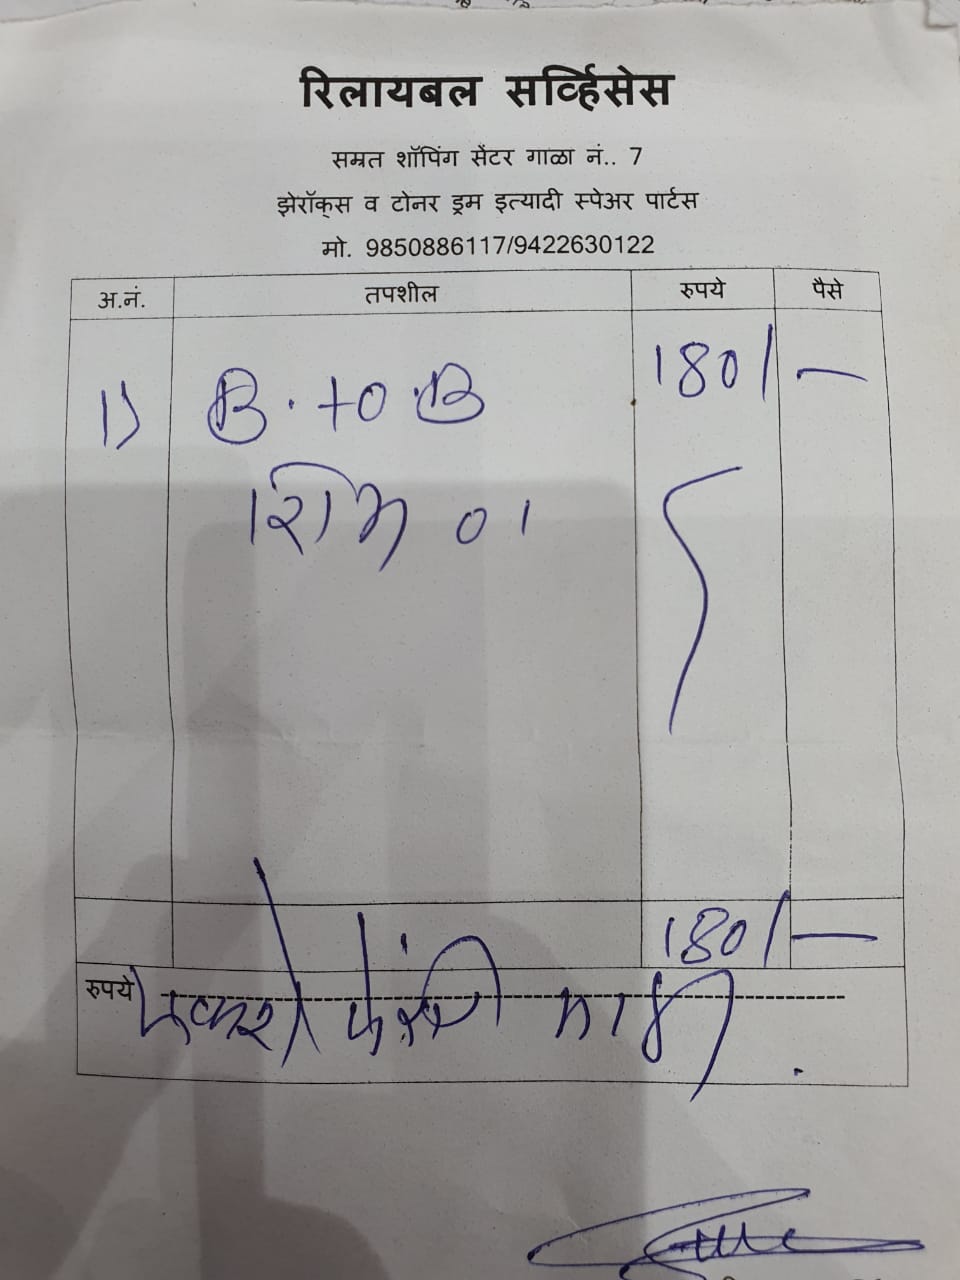 रिलायबल सर्व्हिसेस
सम्रत शॉपिंग सेंटर गाळा नं.. 7
झेरॉक्स व टोनर ड्रम इत्यादी स्पेअर पार्टस
मो. 9850886117/9422630122
अ.नं. तपशील रुपये पैसे
1) B. to .B 180/-
01
180/-
रुपये एकशे